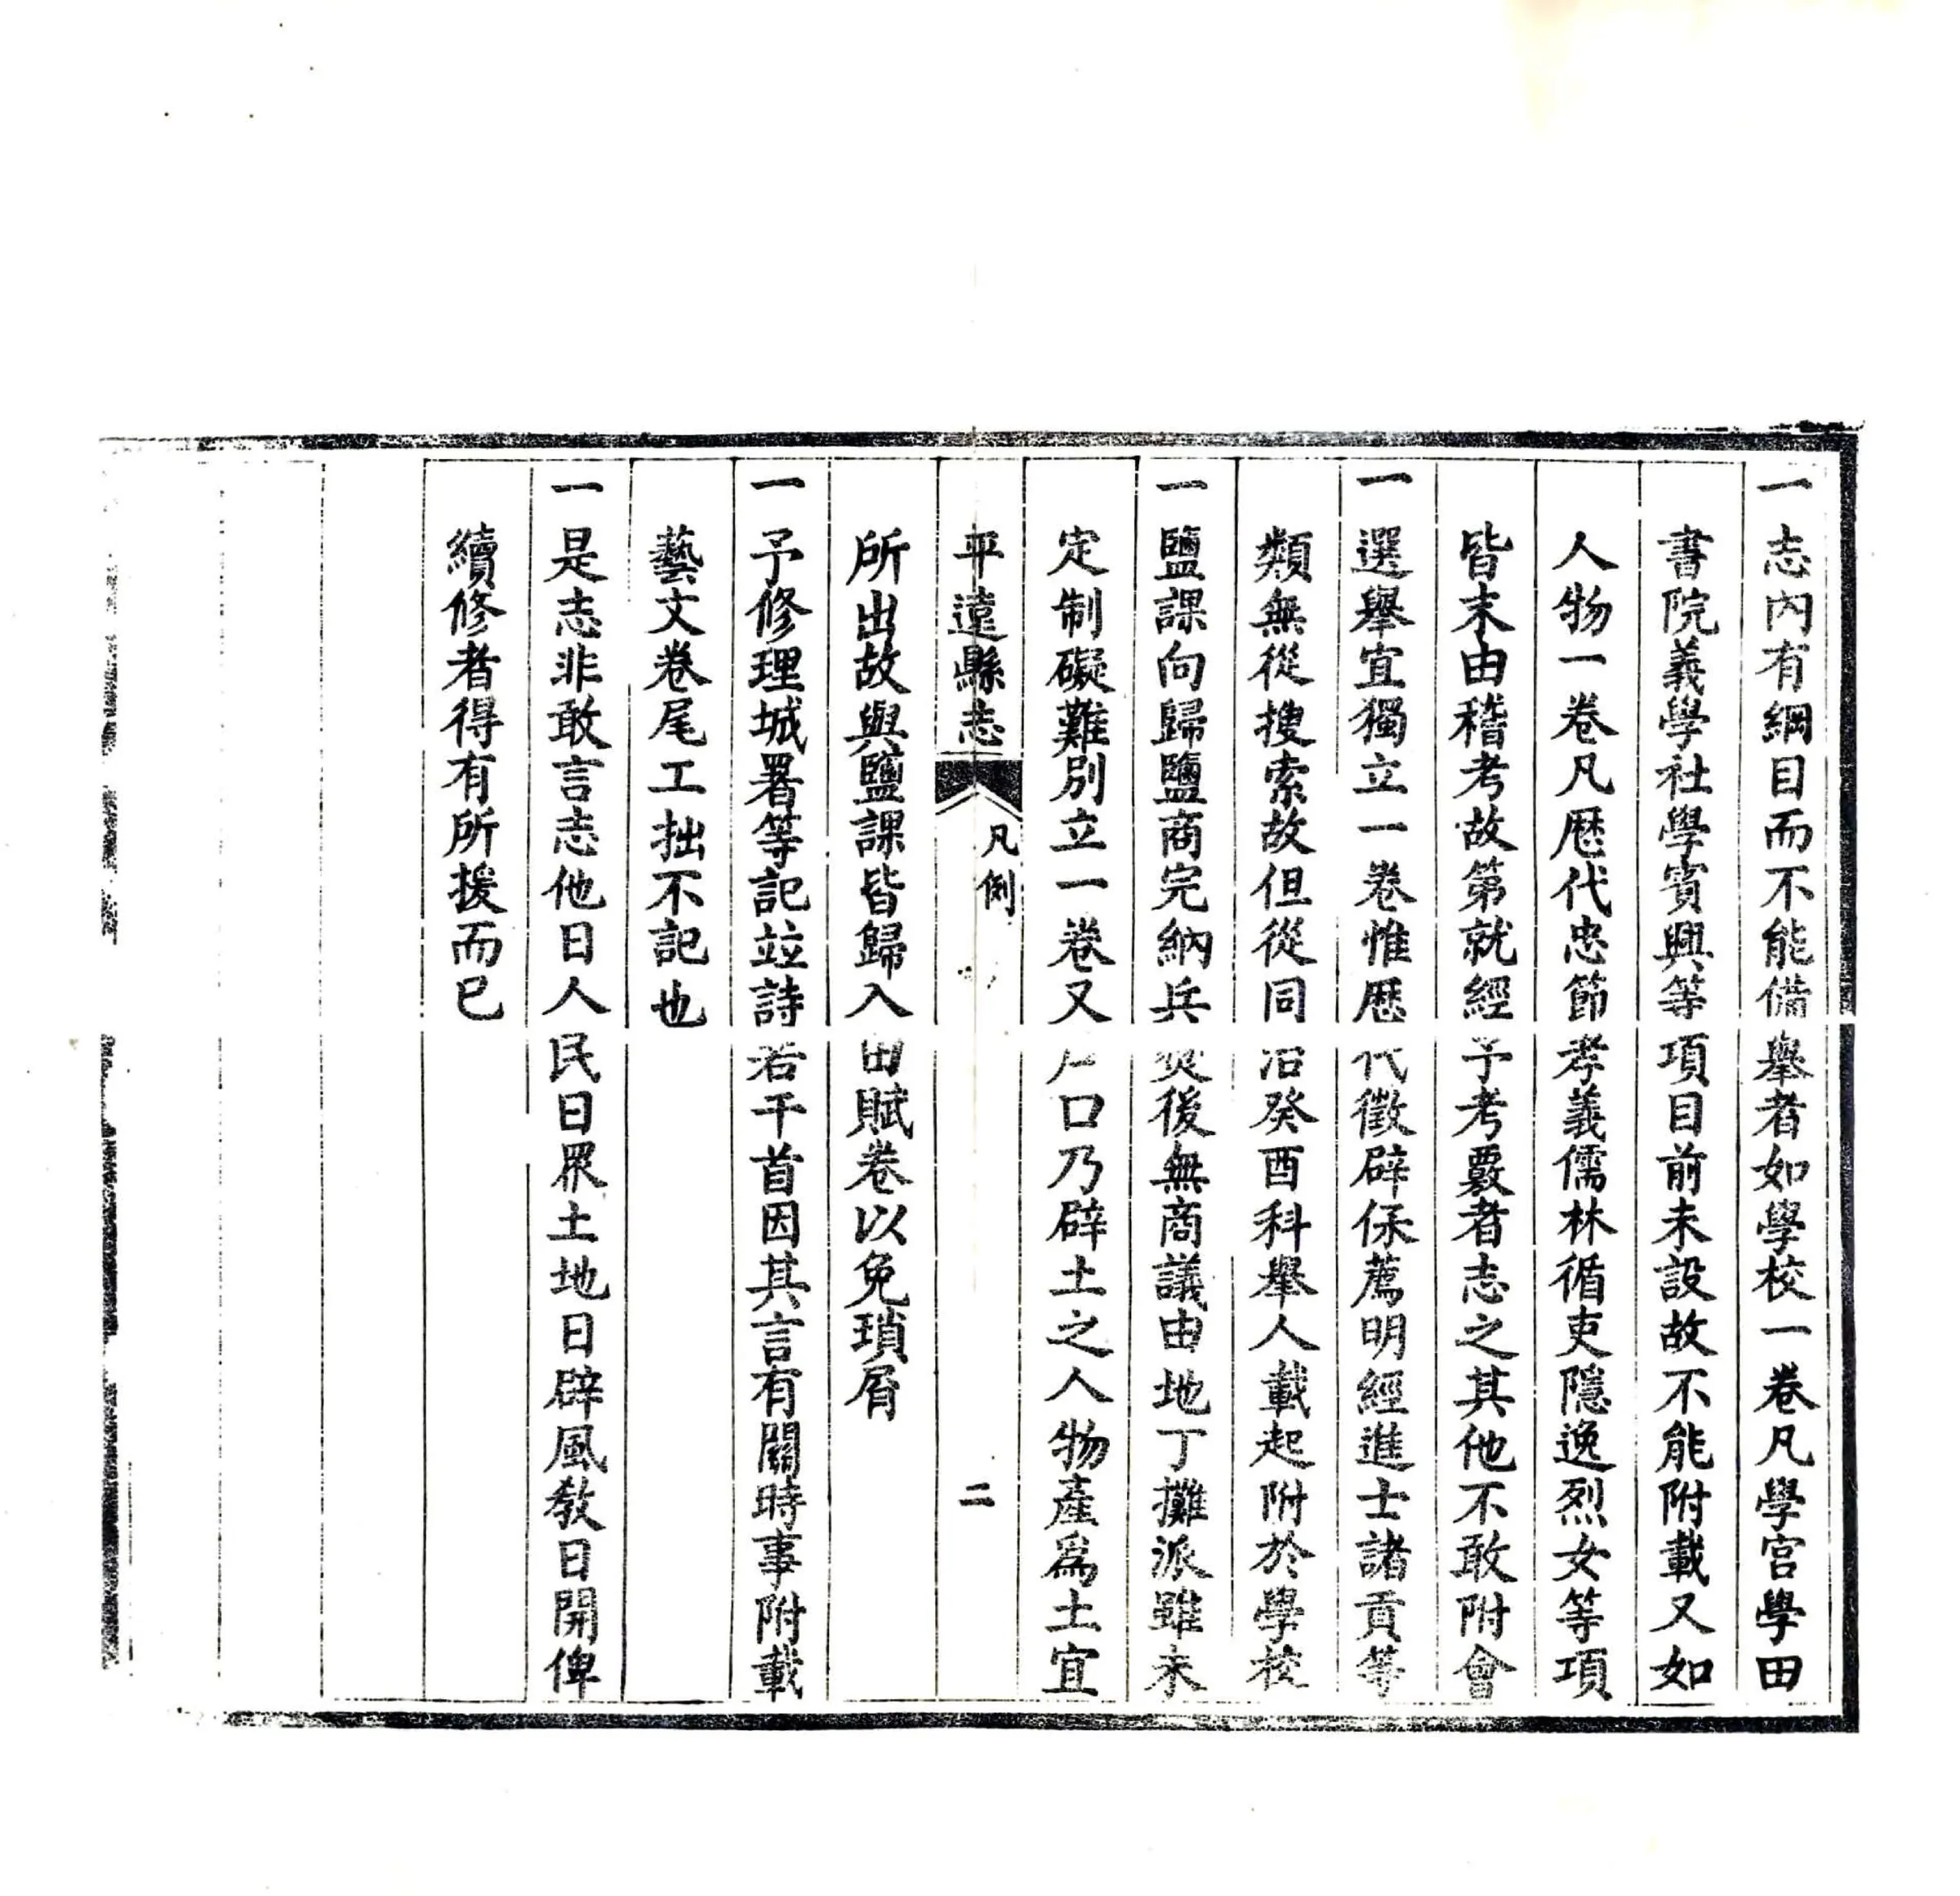 一志內有綱目而不能備舉者如學校一卷凡學宮學田
書院義學社學賓興等項目前未設故不能附載又如
人物一卷凡歷代忠節孝義儒林循吏隱逸烈女等項
皆末由稽考故第就經予考覈者志之其他不敢附會
一選舉宜獨立一卷惟歷代徵辟保薦明經進士諸貢等
類無從搜索故但從同治癸酉科舉人載起附於學校
一鹽課向歸鹽商完納兵燹後無商議由地丁攤派雖未
定制礙難別立一卷又戶口乃辟土之人物產爲土宜
平遠縣志 凡例 二
所出故與鹽課皆歸入田賦卷以免瑣屑
一予修理城署等記竝詩若干首因其言有關時事附載
藝文卷尾工拙不記也
一是志非敢言志他日人民日眾土地日辟風教日開俾
續修者得有所援而已